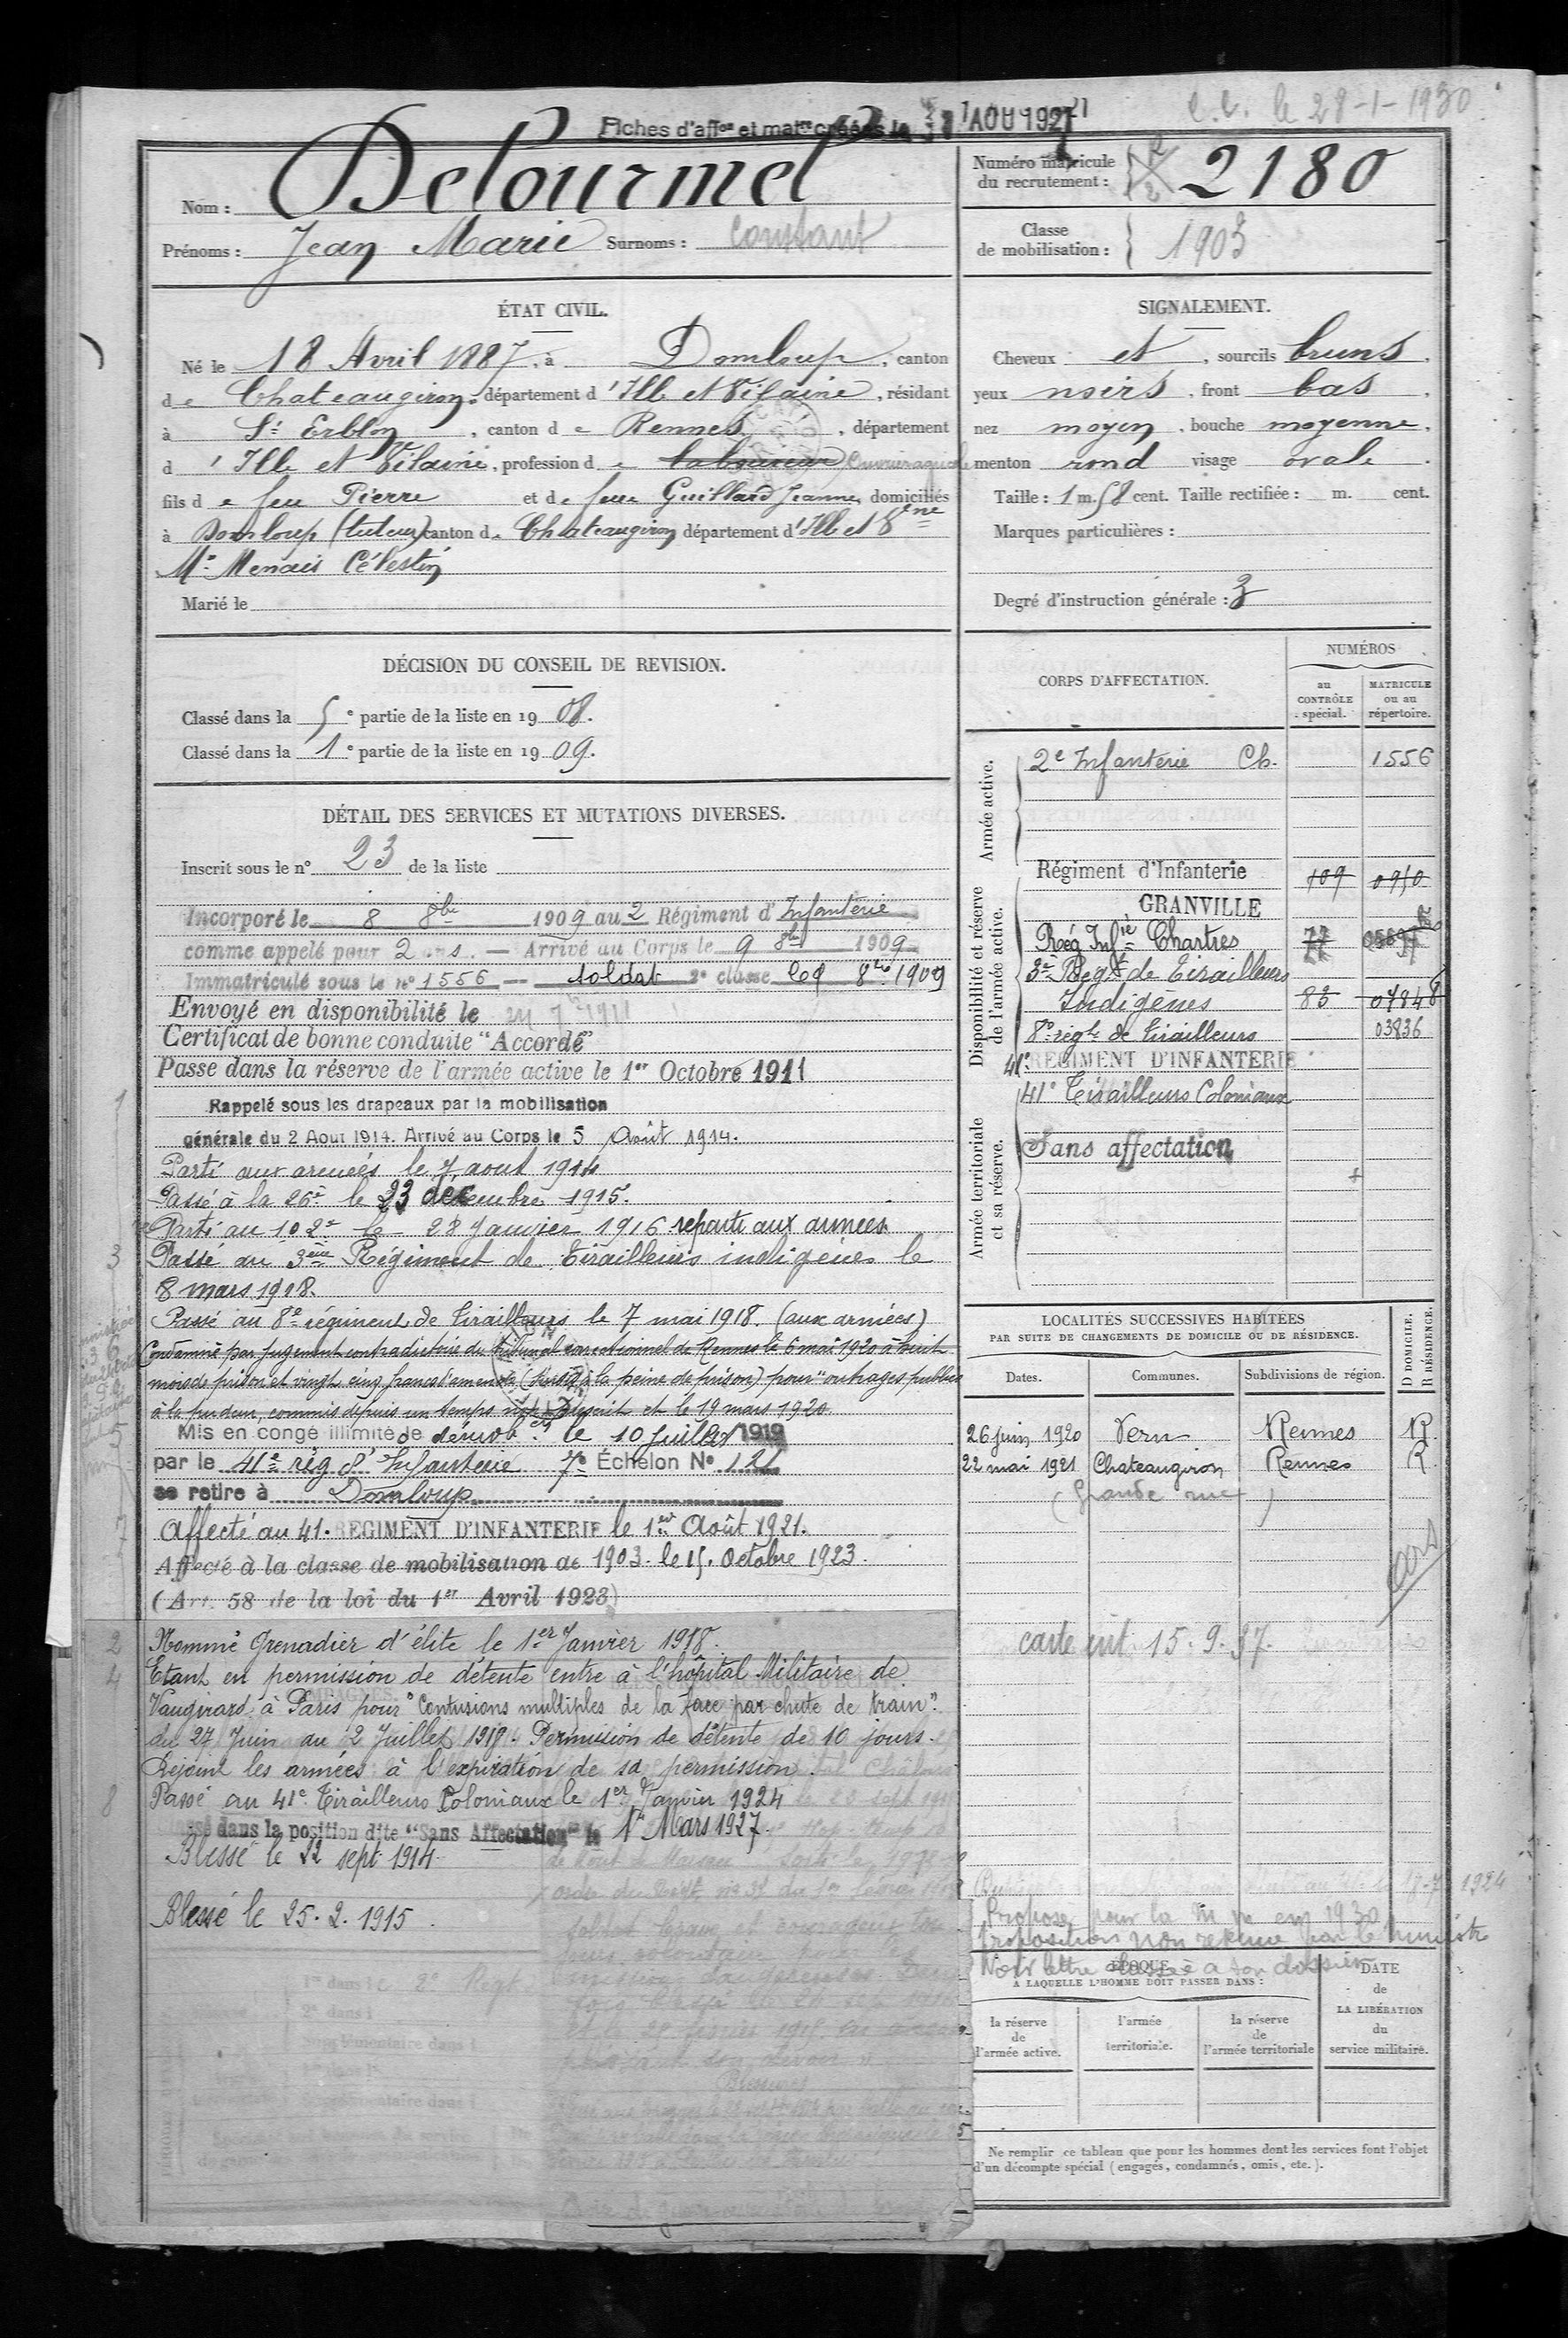 Fiches d'affon et matle créées le AOU 1921
C. C. le 28-1-1930
Nom : Delourmel
Prénoms : Jean Marie Surnoms : Constant
Numéro matricule du recrutement : 2180
Classe de mobilisation : 1903
ÉTAT CIVIL.
Né le 18 Avril 1887, à Domloup, canton
de Chateaugiron, département d'Ille et Vilaine, résidant
à St Erblon, canton de Rennes, département
d'Ille et Vilaine, profession de laboureur Ouvrier agricole
fils de feu Pierre et de feue Guillard Jeanne, domiciliés
à Domloup (tuteur) canton de Chateaugiron département d'Ille et Vne
Mr Menais Célestin
Marié le
SIGNALEMENT.
Cheveux et , sourcils bruns,
yeux noirs, front bas,
nez moyen, bouche moyenne,
menton rond visage ovale.
Taille : 1 m. 58 cent. Taille rectifiée : m. cent.
Marques particulières :
Degré d'instruction générale : 3
DÉCISION DU CONSEIL DE REVISION.
Classé dans la 5e partie de la liste en 1908.
Classé dans la 1e partie de la liste en 1909.
DÉTAIL DES SERVICES ET MUTATIONS DIVERSES.
Inscrit sous le n° 23 de la liste
Incorporé le 8 8bre 1909 au 2 Régiment d'Infanterie
comme appelé pour 2 ans — Arrivé au Corps le 9 8bre 1909
Immatriculé sous le n° 1556 — soldat 2e classe le 9 8bre 1909
Envoyé en disponibilité le 1911
Certificat de bonne conduite "Accordé"
Passé dans la réserve de l'armée active le 1er Octobre 1911
Rappelé sous les drapeaux par la mobilisation
générale du 2 Aout 1914. Arrivé au Corps le 5 Août 1914.
Parti aux armées le 7 aout 1914
Passé à la 26e le 23 décembre 1915.
Parti au 102e le 28 Janvier 1916 reparti aux armées
Passé au 3ème Régiment de Tirailleurs indigènes le
8 mars 1918.
Passé au 8e régiment de Tirailleurs le 7 mai 1918. (aux armées)
Condamné par jugement contradictoire du tribunal correctionnel de Rennes le 6 mai 1920 à huit
mois de prison et vingt cinq francs d'amende (sursis à la peine de prison) pour "outrages publics
à la pudeur, commis depuis un temps non prescrit et le 19 mars 1920
Mis en congé illimité de démob. le 10 Juillet 1919
par le 41e rég d'Infanterie 7e Échelon N° 121
se retire à Domloup
Affecté au 41. REGIMENT D'INFANTERIE le 1er Août 1921.
Affecté à la classe de mobilisation de 1903. le 15. Octobre 1923.
(Art. 58 de la loi du 1er Avril 1923)
Nommé Grenadier d'élite le 1er Janvier 1918.
Etant en permission de détente entre à l'hôpital Militaire de
Vaugirard à Paris pour "Contusions multiples de la face par chute de train".
du 27 Juin au 2 Juillet 1918. Permission de détente de 10 jours.
Rejoint les armées à l'expiration de sa permission.
Passé au 41e Tirailleurs Coloniaux le 1er Janvier 1924
Classé dans la position dite "Sans Affectation" le 1er Mars 1927.
Blessé le 22 sept 1914.
Blessé le 25.2.1915.
CORPS D'AFFECTATION.
NUMÉROS
au CONTRÔLE spécial.
MATRICULE ou au répertoire.
Armée active.
2e Infanterie Ch. 1556
Disponibilité et réserve de l'armée active.
Régiment d'Infanterie 109 0950
GRANVILLE
Rég Infie Chartres 77
3e Regt de Tirailleurs
Indigènes 83 07848
8e régt de Tirailleurs 03836
41e REGIMENT D'INFANTERIE
Armée territoriale et sa réserve.
41e Tirailleurs Coloniaux
Sans affectation
LOCALITÉS SUCCESSIVES HABITÉES
PAR SUITE DE CHANGEMENTS DE DOMICILE OU DE RÉSIDENCE.
Dates. Communes. Subdivisions de région. D DOMICILE. R RÉSIDENCE.
26 juin 1920 Vern Rennes R.
22 mai 1921 Chateaugiron Rennes R
(Grande rue)
carte ent. 15.9.37.
Propose pour la en 1930
proposition non retenue par le Ministre
Voir lettre classée à son dossier
ÉPOQUE
À LAQUELLE L'HOMME DOIT PASSER DANS :
la réserve de l'armée active.
l'armée territoriale.
la réserve de l'armée territoriale
DATE de LA LIBÉRATION du service militaire.
Ne remplir ce tableau que pour les hommes dont les services font l'objet
d'un décompte spécial (engagés, condamnés, omis, etc.).